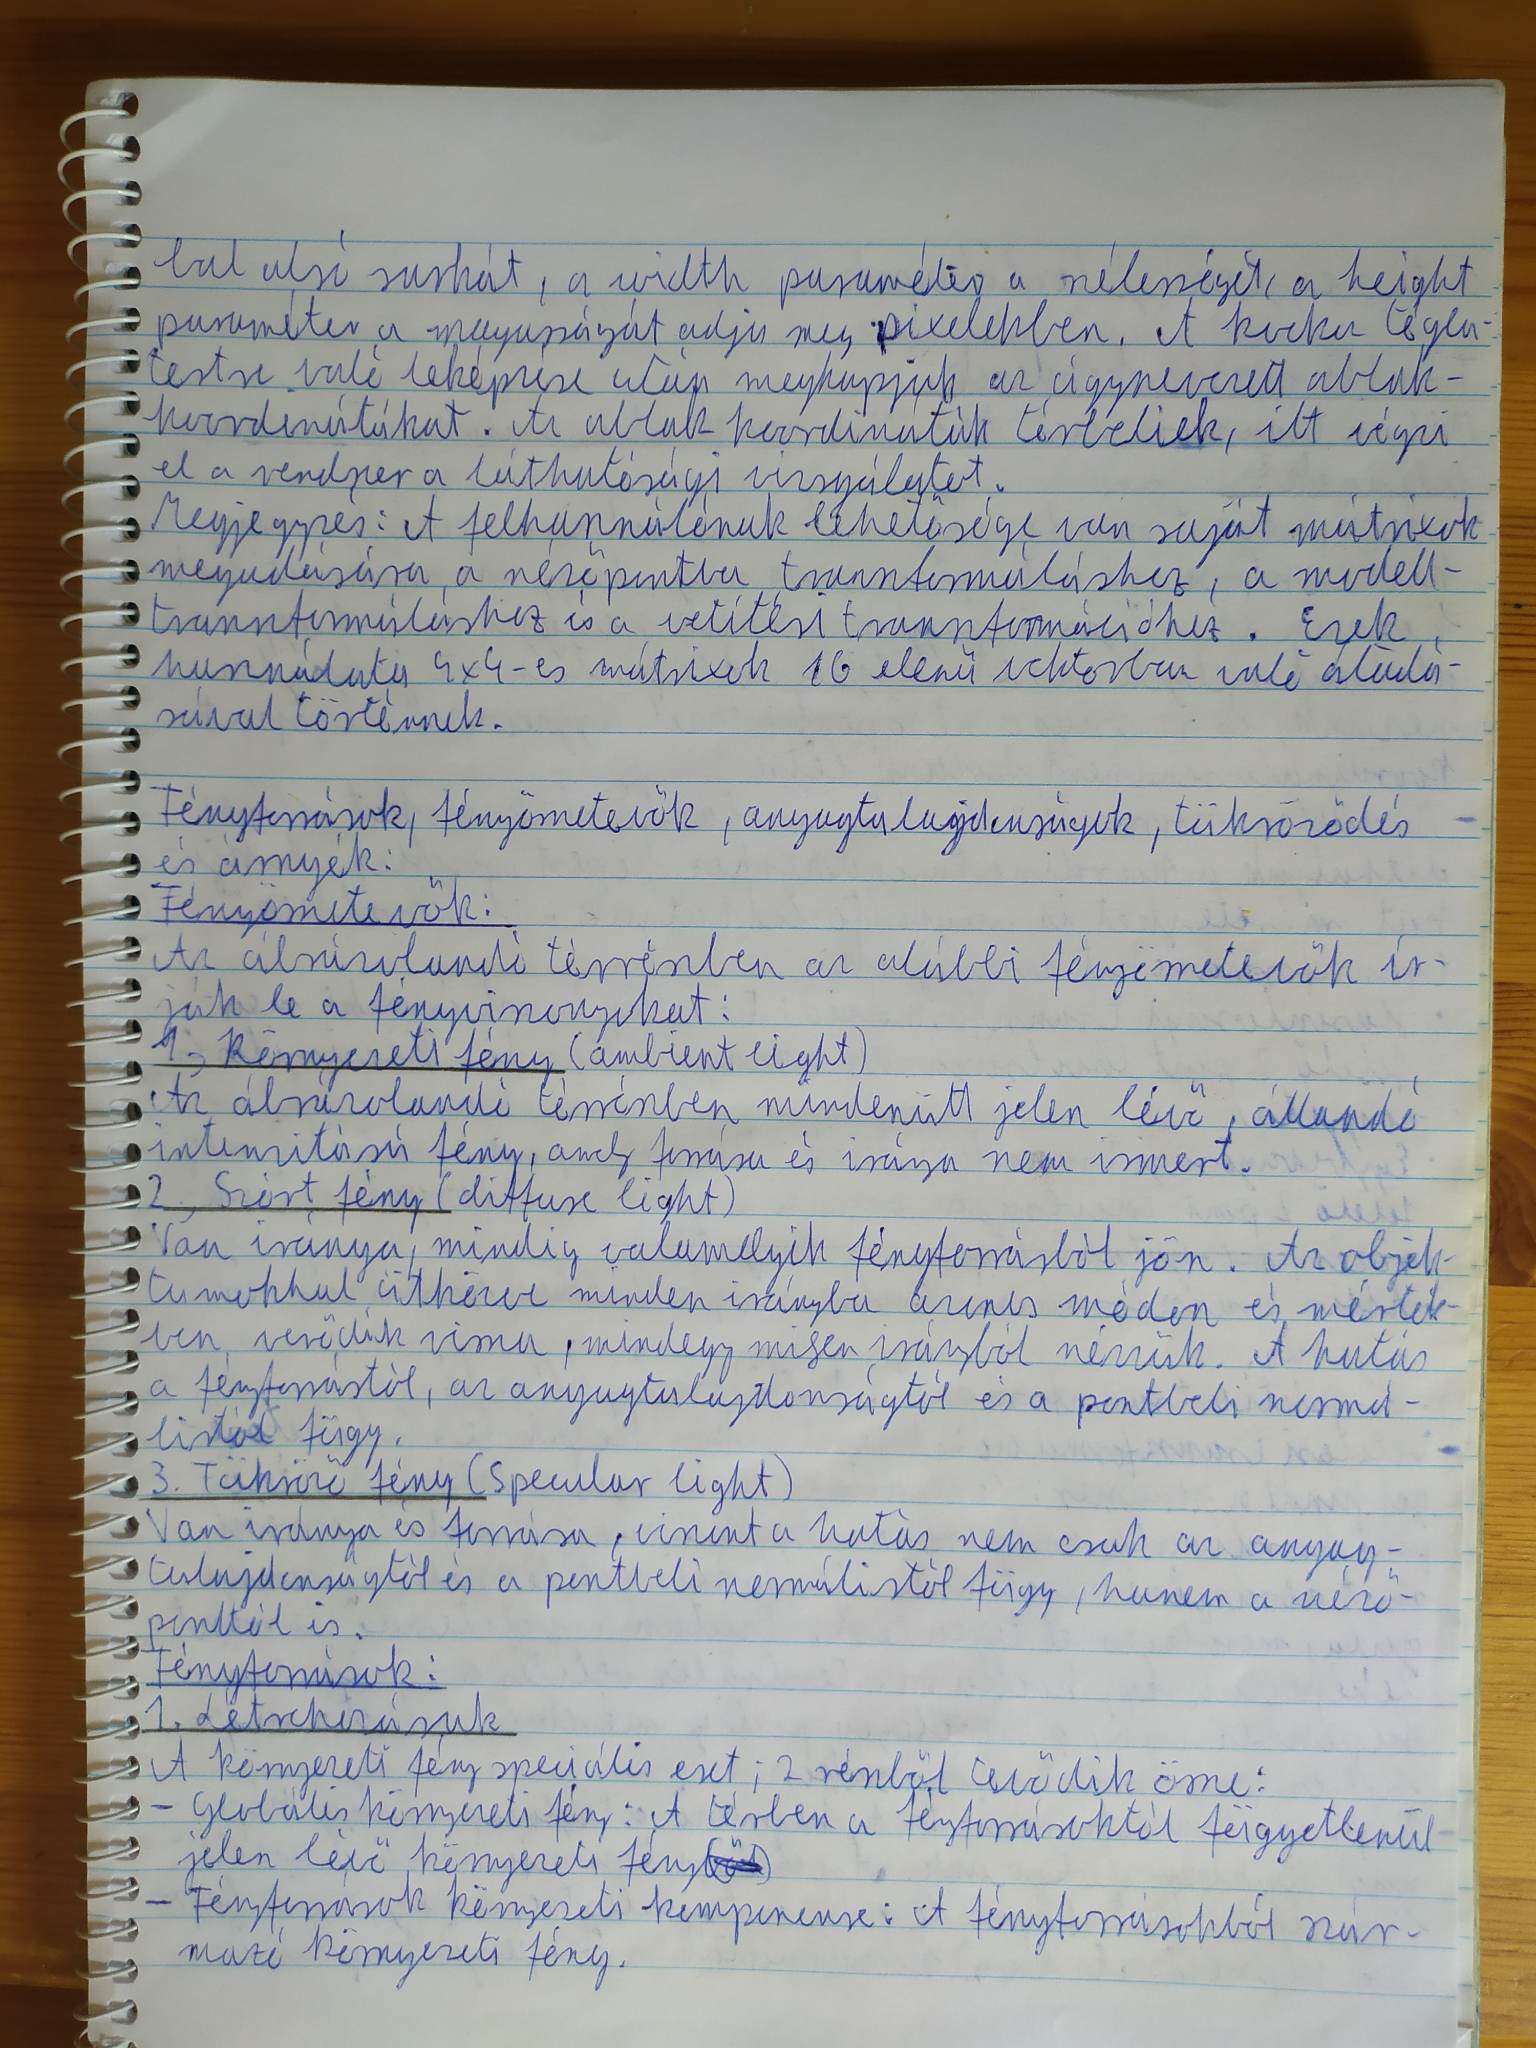 bal alsó sarkát, a width paraméter a szélességét, a height
paraméter a magasságát adja meg pixelekben. A kocka tégla-
testre való leképzése után megkapjuk az úgynevezett ablak-
koordinátákat. Az ablak koordináták térbeliek, itt végzi
el a rendszer a láthatósági vizsgálatot.
Megjegyzés: A felhasználónak lehetősége van saját mátrixok
megadására a nézőpontba transzformáláshoz, a modell-
transzformáláshoz és a vetítési transzformációhoz. Ezek
használata 4x4-es mátrixok 16 elemű vektorban való átadá-
sával történnek.
Fényforrások, fényösszetevők, anyagtulajdonságok, tükröződés
és árnyék:
Fényösszetevők:
Az ábrázolandó térrészben az alábbi fényösszetevők ír-
ják le a fényviszonyokat:
1, Környezeti fény (ambient light)
Az ábrázolandó térrészben mindenütt jelen lévő, állandó
intenzitású fény, amely forrása és iránya nem ismert.
2, Szórt fény (diffuse light)
Van iránya, mindig valamelyik fényforrásból jön. Az objek-
tumokkal ütközve minden irányba azonos módon és mérték-
ben verődik vissza, mindegy milyen irányból nézzük. A hatás
a fényforrástól, az anyagtulajdonságtól és a pontbeli normá-
listól függ.
3. Tükröző fény (specular light)
Van iránya és forrása, viszont a hatás nem csak az anyag-
tulajdonságtól és a pontbeli normálistól függ, hanem a néző-
ponttól is.
Fényforrások:
1. Létrehozásuk
A környezeti fény speciális eset; 2 részből tevődik össze:
- Globális környezeti fény: A térben a fényforrásoktól függetlenül
jelen lévő környezeti fény
- Fényforrások környezeti komponense: A fényforrásokból szár-
mazó környezeti fény.